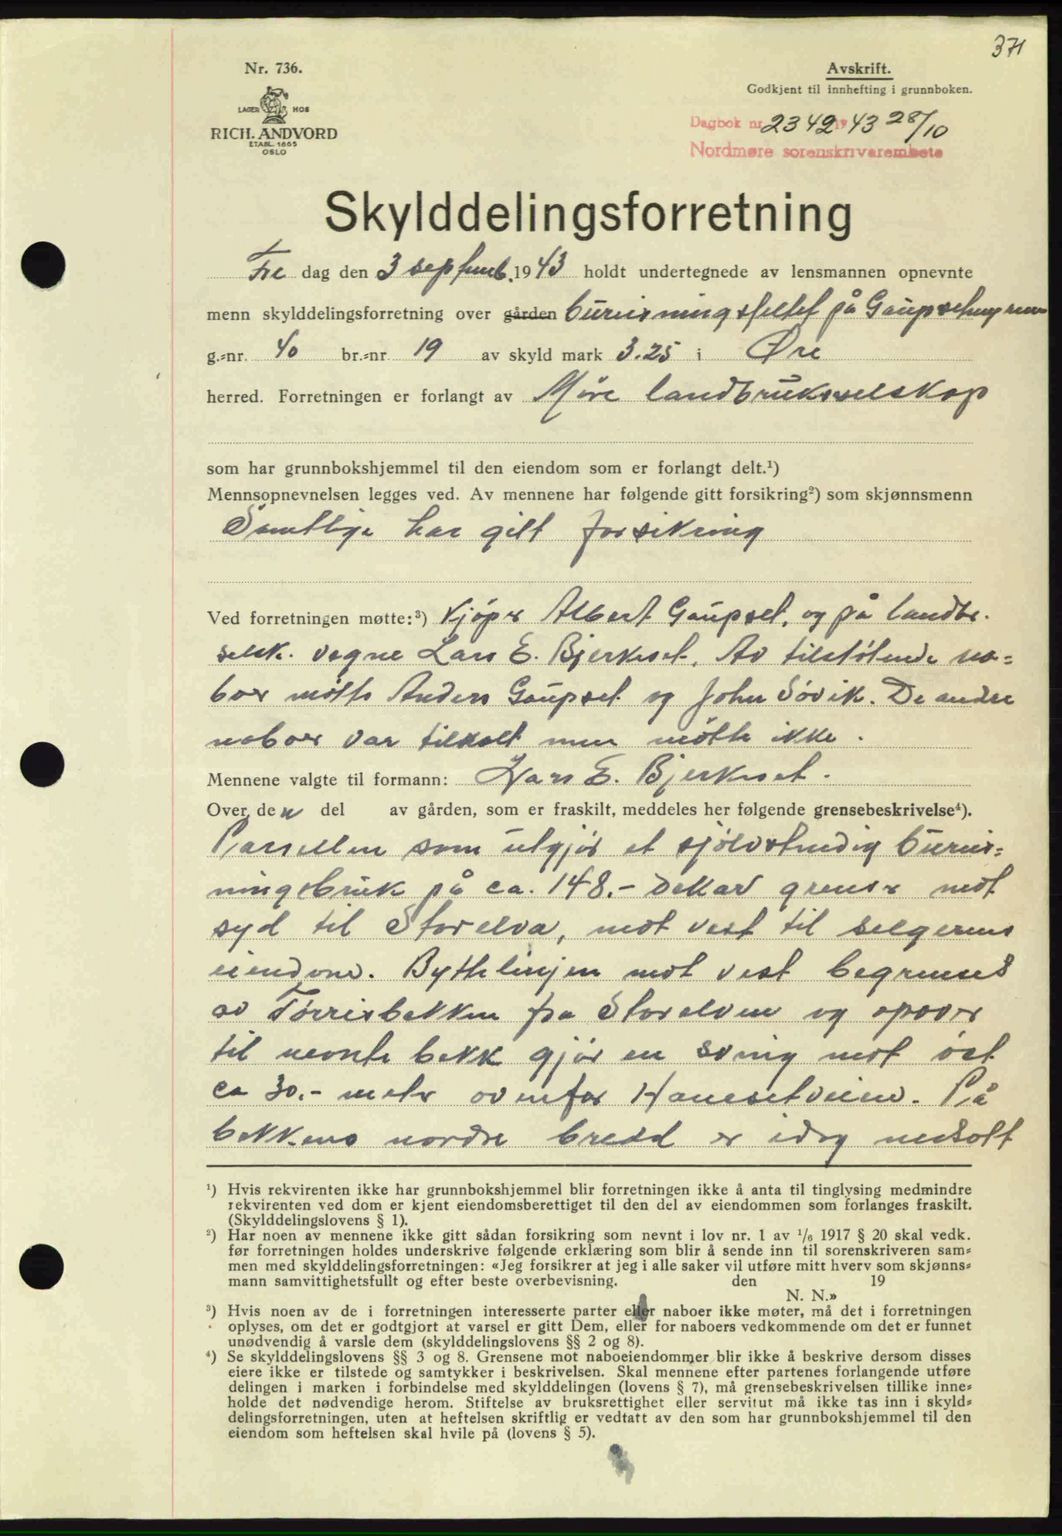 371
Nr. 736.
LAGER HOS
RICH. ANDVORD
ETABL. 1865
OSLO
Avskrift.
Godkjent til innhefting i grunnboken.
Dagbok nr. 2342 1943 28/10
Nordmøre sorenskriverembete
Skylddelingsforretning
Fre dag den 3 septemb. 1943 holdt undertegnede av lensmannen opnevnte
menn skylddelingsforretning over gården bureisningsfeltet på Gaupset
g.=nr. 40 br.=nr 19 av skyld mark 3.25 i Øre
herred. Forretningen er forlangt av Møre landbruksselskap
som har grunnbokshjemmel til den eiendom som er forlangt delt.¹)
Mennsopnevnelsen legges ved. Av mennene har følgende gitt forsikring²) som skjønnsmenn
Samtlige har gitt forsikring
Ved forretningen møtte:³) Kjøper Albert Gaupset, og på landbr.
selsk. vegne Lars E. Bjerkeset. Av tilstøtende na=
boer møtte Anders Gaupset og John Søvik. De andre
naboer var tilkalt men møtte ikke.
Mennene valgte til formann: Lars E. Bjerkeset.
Over den del av gården, som er fraskilt, meddeles her følgende grensebeskrivelse⁴).
Parsellen som utgjør et sjølvstendig bureis=
ningsbruk på ca. 148.- dekar grenser mot
syd til Storelva, mot vest til selgerens
eiendom. Byttelinjen mot vest begrenses
av Tørrisbekken fra Storelven og opover
til nevnte bekk gjør en sving mot øst
ca 30.- meter ovenfor Hanesetveien. På
bekkens nordre bredd er idag nedsatt
¹) Hvis rekvirenten ikke har grunnbokshjemmel blir forretningen ikke å anta til tinglysing medmindre
rekvirenten ved dom er kjent eiendomsberettiget til den del av eiendommen som forlanges fraskilt.
(Skylddelingslovens § 1).
²) Har noen av mennene ikke gitt sådan forsikring som nevnt i lov nr. 1 av ¹/₆ 1917 § 20 skal vedk.
før forretningen holdes underskrive følgende erklæring som blir å sende inn til sorenskriveren sam=
men med skylddelingsforretningen: «Jeg forsikrer at jeg i alle saker vil utføre mitt hverv som skjønns=
mann samvittighetsfullt og efter beste overbevisning. den 19
N. N.»
³) Hvis noen av de i forretningen interesserte parter eller naboer ikke møter, må det i forretningen
oplyses, om det er godtgjort at varsel er gitt Dem, eller for naboers vedkommende om det er funnet
unødvendig å varsle dem (skylddelingslovens §§ 2 og 8).
⁴) Se skylddelingslovens §§ 3 og 8. Grensene mot naboeiendommer blir ikke å beskrive dersom disses
eiere ikke er tilstede og samtykker i beskrivelsen. Skal mennene efter partenes forlangende utføre
delingen i marken i forbindelse med skylddelingen (lovens § 7), må grensebeskrivelsen tillike inne=
holde det nødvendige herom. Stiftelse av bruksrettighet eller servitut må ikke tas inn i skyld=
delingsforretningen, uten at heftelsen skriftlig er vedtatt av den som har grunnbokshjemmel til den
eiendom som heftelsen skal hvile på (lovens § 5).